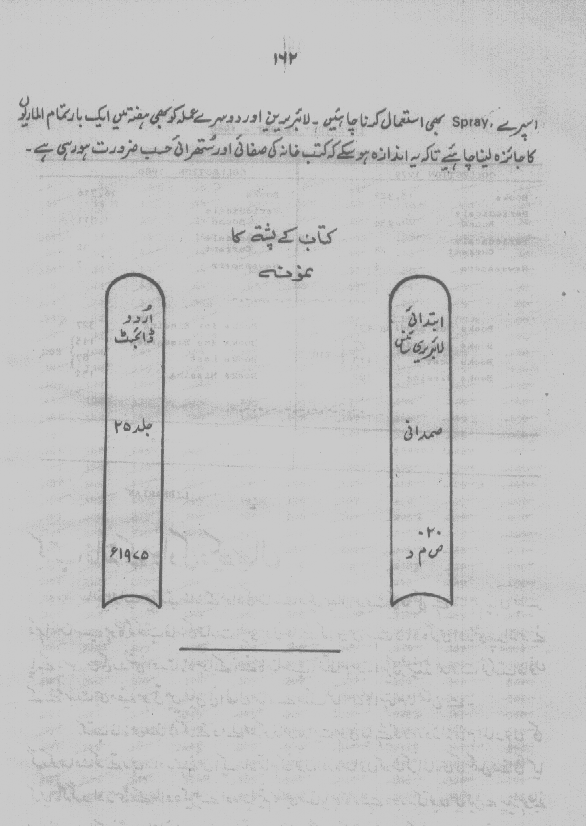 ۱۶۲
اسپرے .Spray بھی استعمال کرنا چاہئیں ۔ لائبریرین اور دوسرے عملہ کو بھی ہفتہ میں ایک بار تمام الماریوں
کا جائزہ لینا چاہئیے تاکہ یہ اندازہ ہو سکے کہ کتب خانہ کی صفائی اور ستھرائی حسب ضرورت ہو رہی ہے ۔
کتاب کے پشتے کا
نمونہ
ابتدائی
لائبریری سائنس
صمدانی
۰۲۰
ص م د
اُردو
ڈائجسٹ
جلد ۲۵
۱۹۷۵ء